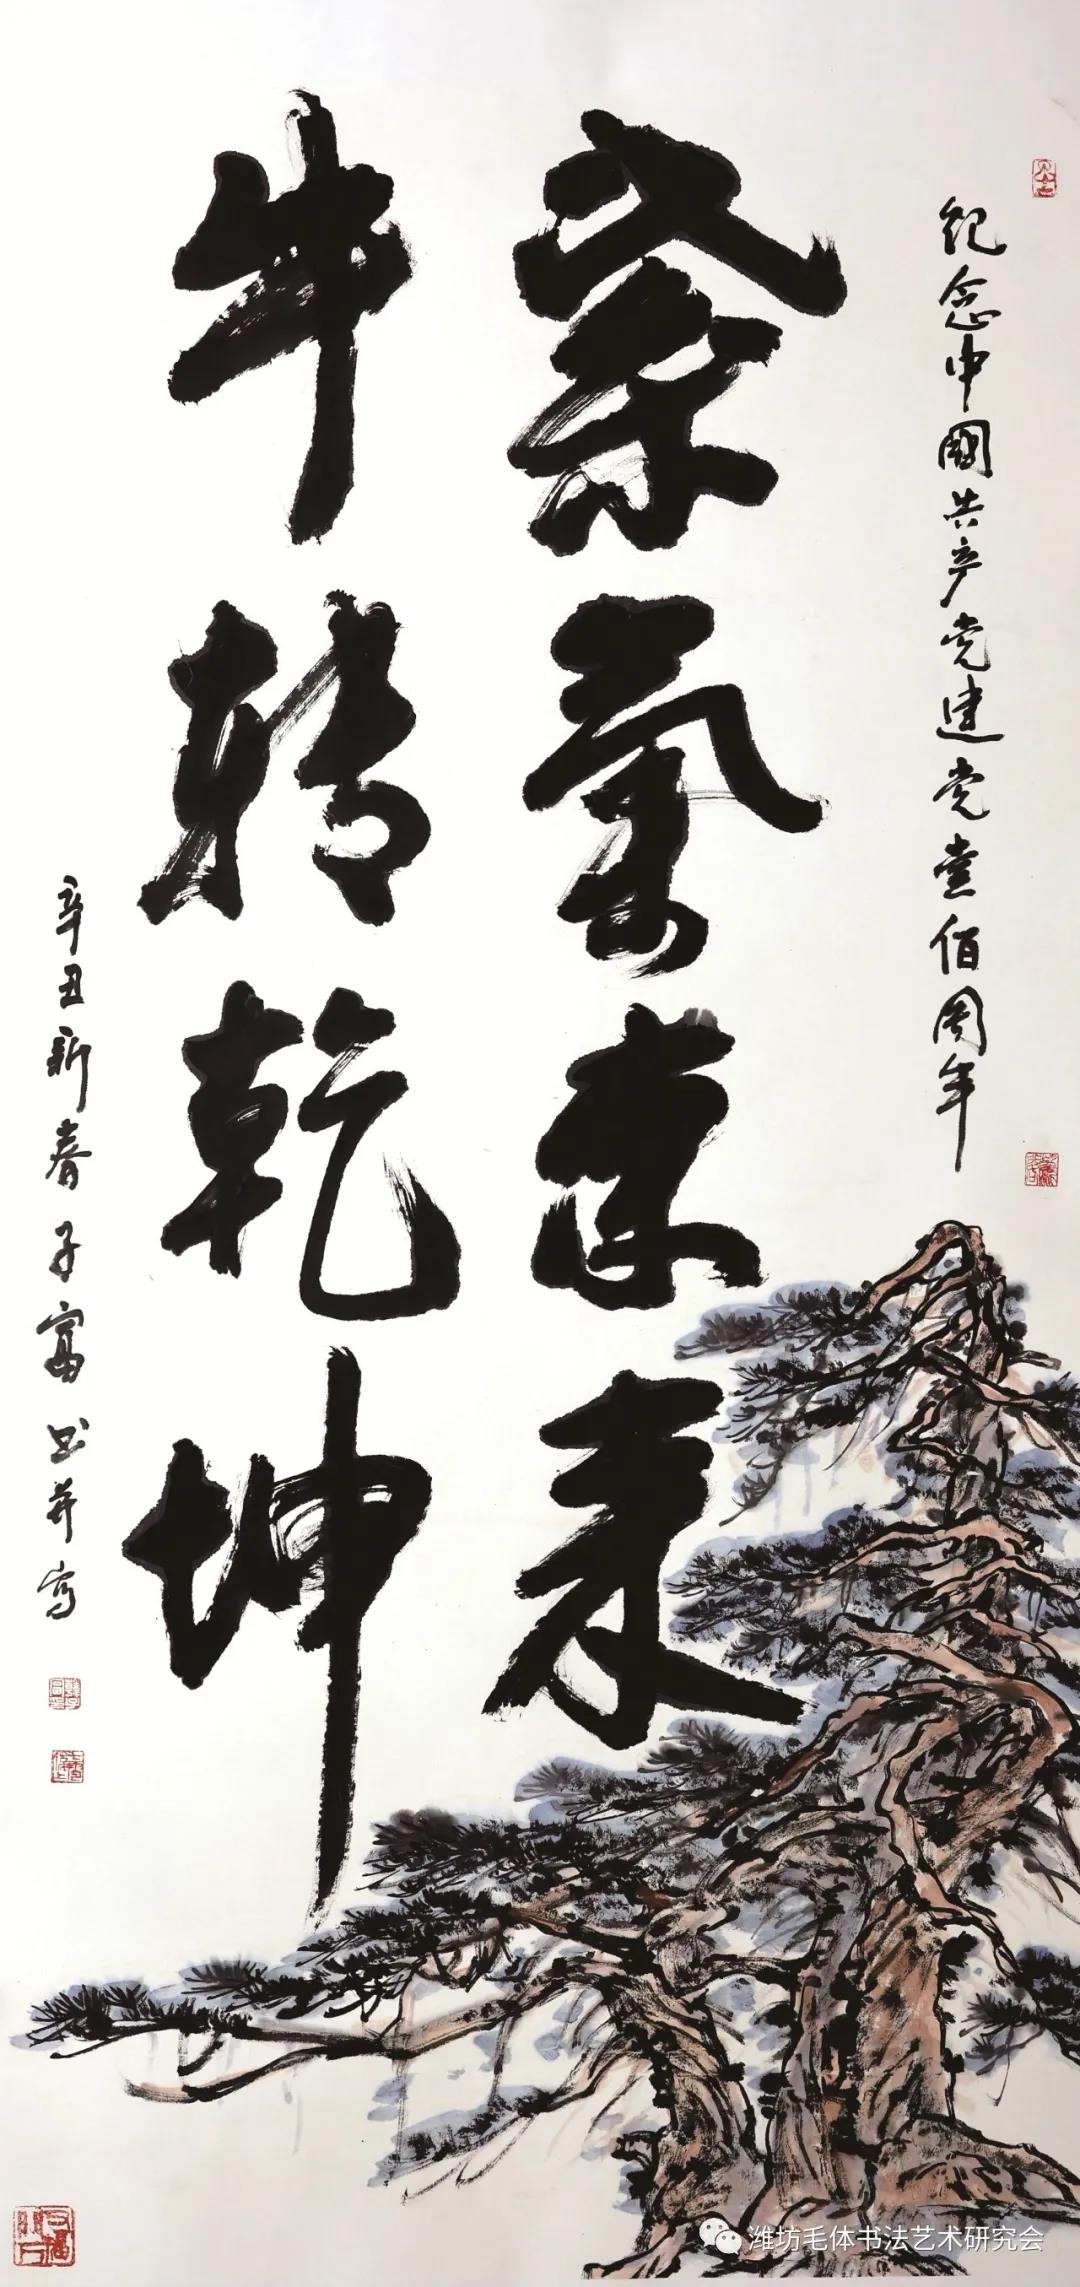 纪念中國共产党建党壹佰周年
紫氣東来
牛转乾坤
辛丑新春子富书并写
潍坊毛体书法艺术研究会